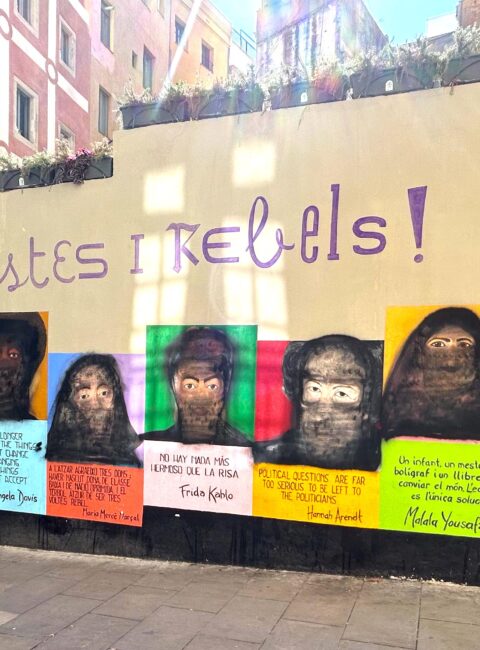 stes i Rebels!
LONGER
THE THINGS
T CHANGE
ANGING
THINGS
T ACCEPT
ngela Davis
A L'ATZAR AGRAEIXO TRES DONS:
HAVER NASCUT DONA, DE CLASSE
BAIXA I DE NACIÓ OPRIMIDA. I EL
TÈRBOL ATZUR DE SER TRES
VOLTES REBEL.
Maria Mercè Marçal
NO HAY NADA MÁS
HERMOSO QUE LA RISA
Frida Kahlo
POLITICAL QUESTIONS ARE FAR
TOO SERIOUS TO BE LEFT TO
THE POLITICIANS
Hannah Arendt
Un infant, un mest
bolígraf i un llibre
canviar el món. L'e
és l'única soluc
Malala Yousafz